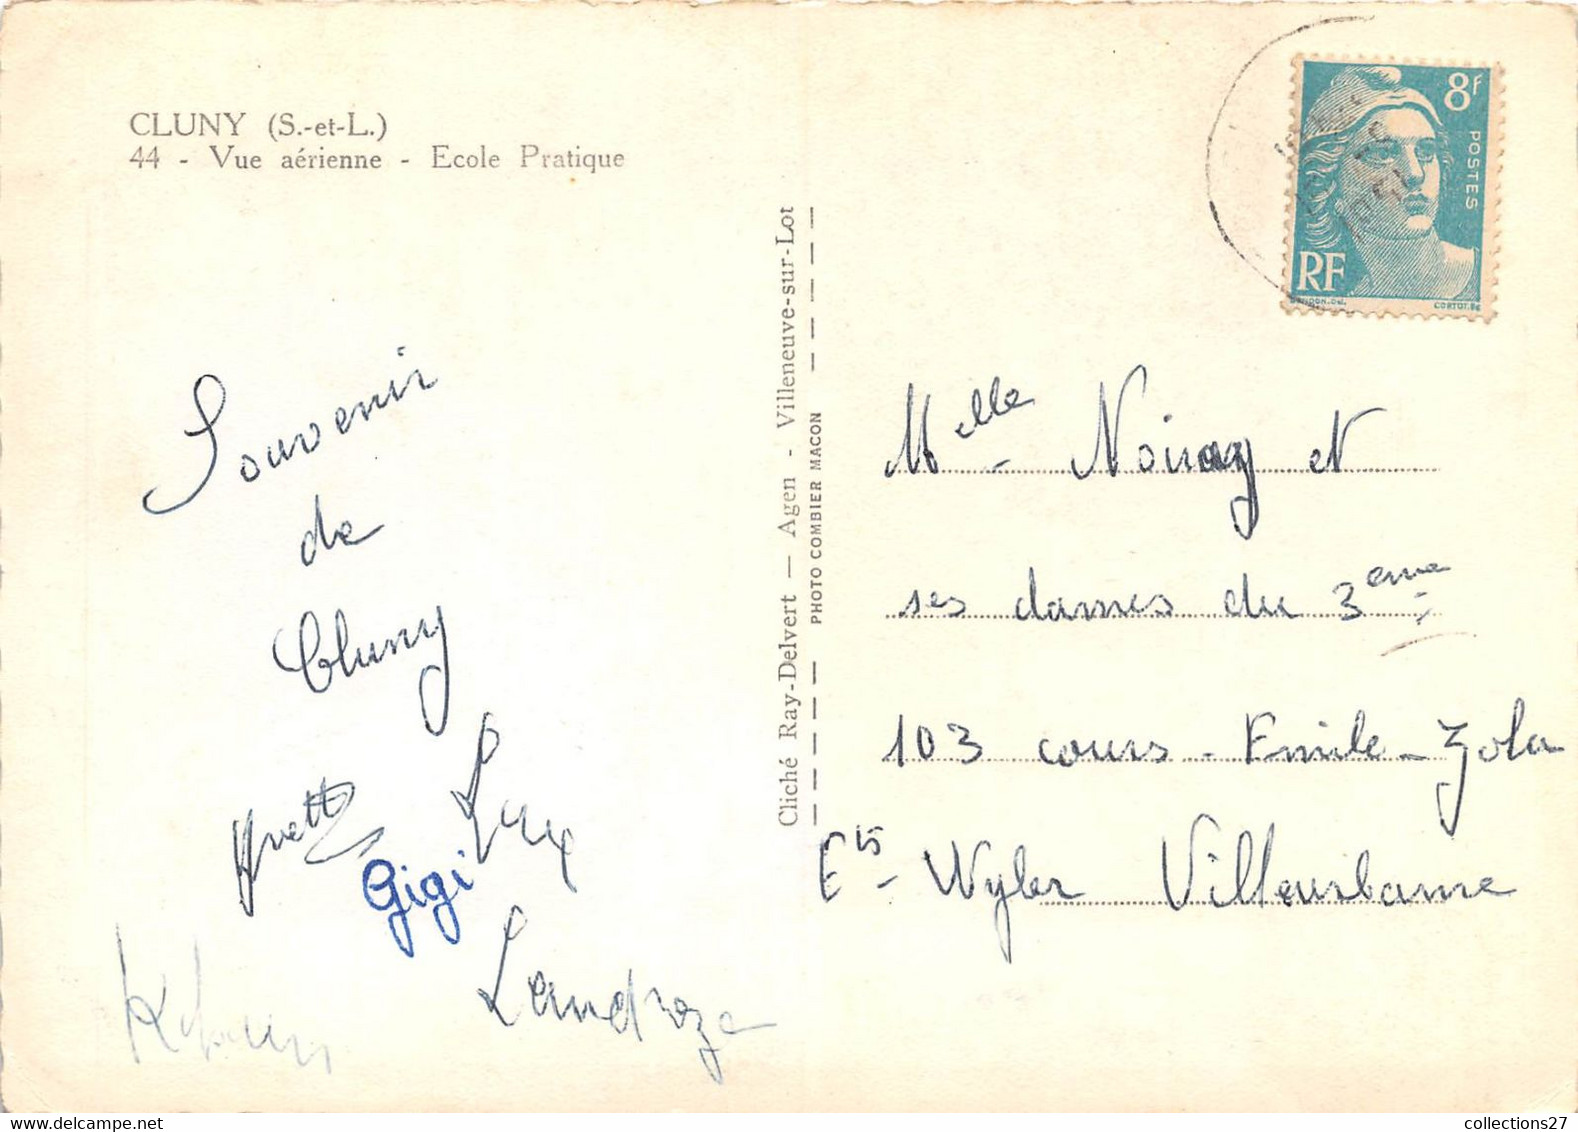 CLUNY (S.-et-L.)
44 - Vue aérienne - Ecole Pratique
Souvenir
de
Cluny
Yvette
Gigi
Cliché Ray-Delvert — Agen - Villeneuve-sur-Lot
PHOTO COMBIER MACON
8F
POSTES
RF
GANDON.DEL.
CORTOT.SC
1951
Melle Noiray et
ses dames du 3eme
103 cours - Emile - Zola
Ets - Wyler Villeurbanne
collections27